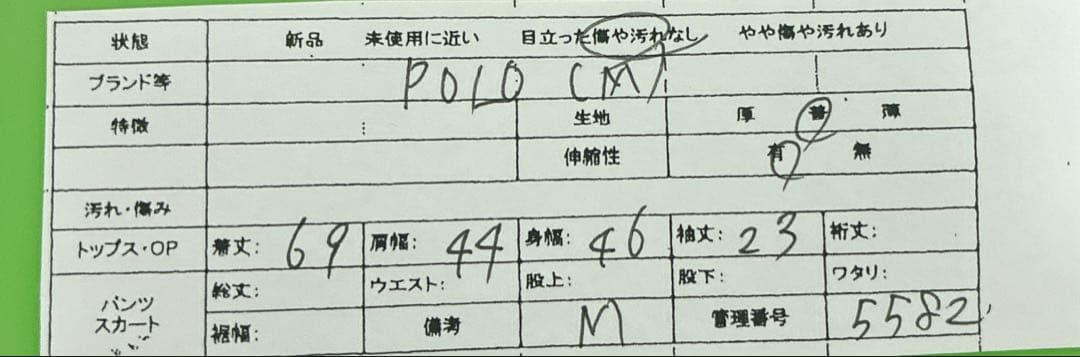 状態 新品 未使用に近い 目立った傷や汚れなし やや傷や汚れあり
ブランド等 POLO (M)
特徴 生地 厚 普 薄
伸縮性 有 無
汚れ・傷み
トップス・OP 着丈: 69 肩幅: 44 身幅: 46 袖丈: 23 裄丈:
パンツ スカート 総丈: ウエスト: 股上: 股下: ワタリ:
裾幅: 備考 M 管理番号 5582